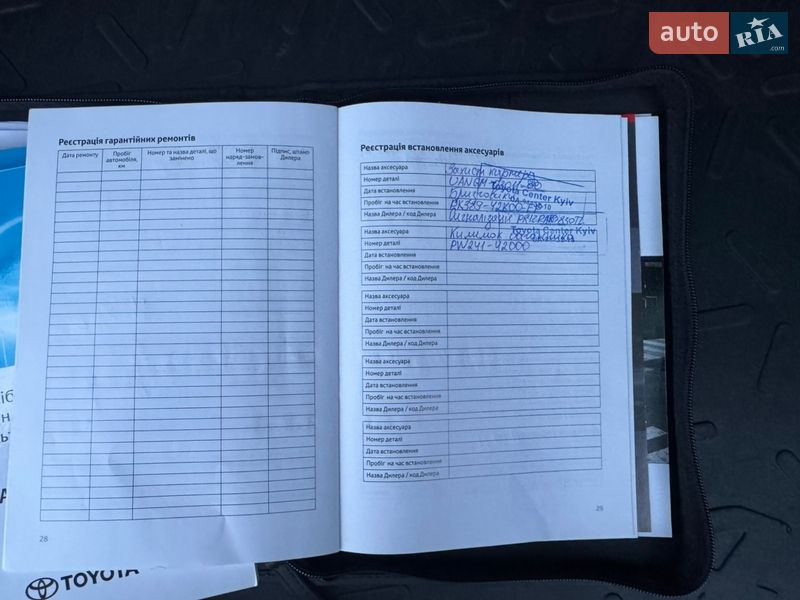 auto RIA .com
Реєстрація гарантійних ремонтів
Дата ремонту
Пробіг автомобіля, км
Номер та назва деталі, що замінено
Номер наряд-замов-лення
Підпис, штамп Дилера
28
TOYOTA
Реєстрація встановлення аксесуарів
Назва аксесуара Захист картера
Номер деталі
Дата встановлення
Toyota Center Kyiv
Пробіг на час встановлення
Назва Дилера / код Дилера Сигналізація
Назва аксесуара Килимок багажника
Toyota Center Kyiv
Номер деталі PW241-42000
Дата встановлення
Пробіг на час встановлення
Назва Дилера / код Дилера
Назва аксесуара
Номер деталі
Дата встановлення
Пробіг на час встановлення
Назва Дилера / код Дилера
Назва аксесуара
Номер деталі
Дата встановлення
Пробіг на час встановлення
Назва Дилера / код Дилера
Назва аксесуара
Номер деталі
Дата встановлення
Пробіг на час встановлення
Назва Дилера / код Дилера
29